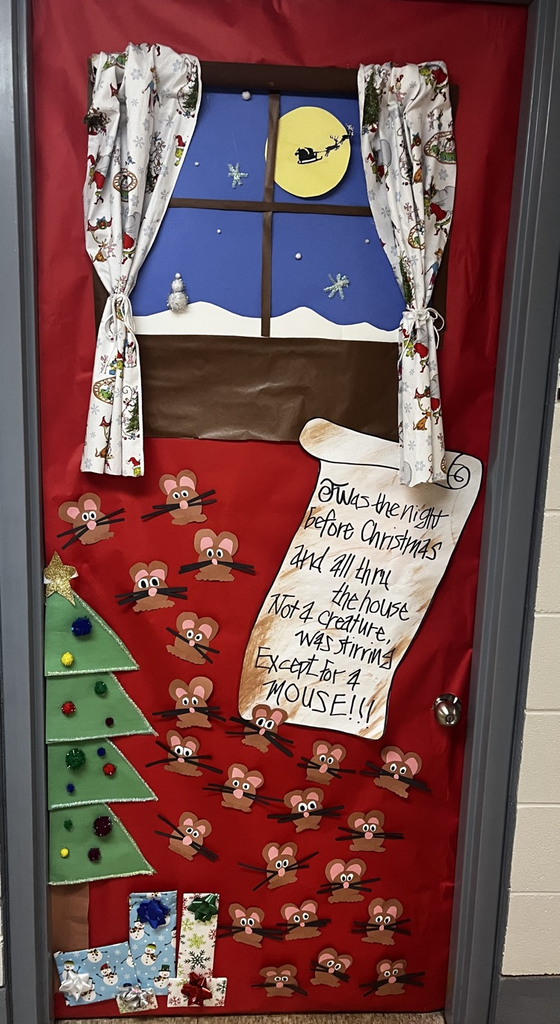 'Twas the night
before Christmas
and all thru
the house
Not a creature,
was stirring
Except for a
MOUSE!!!